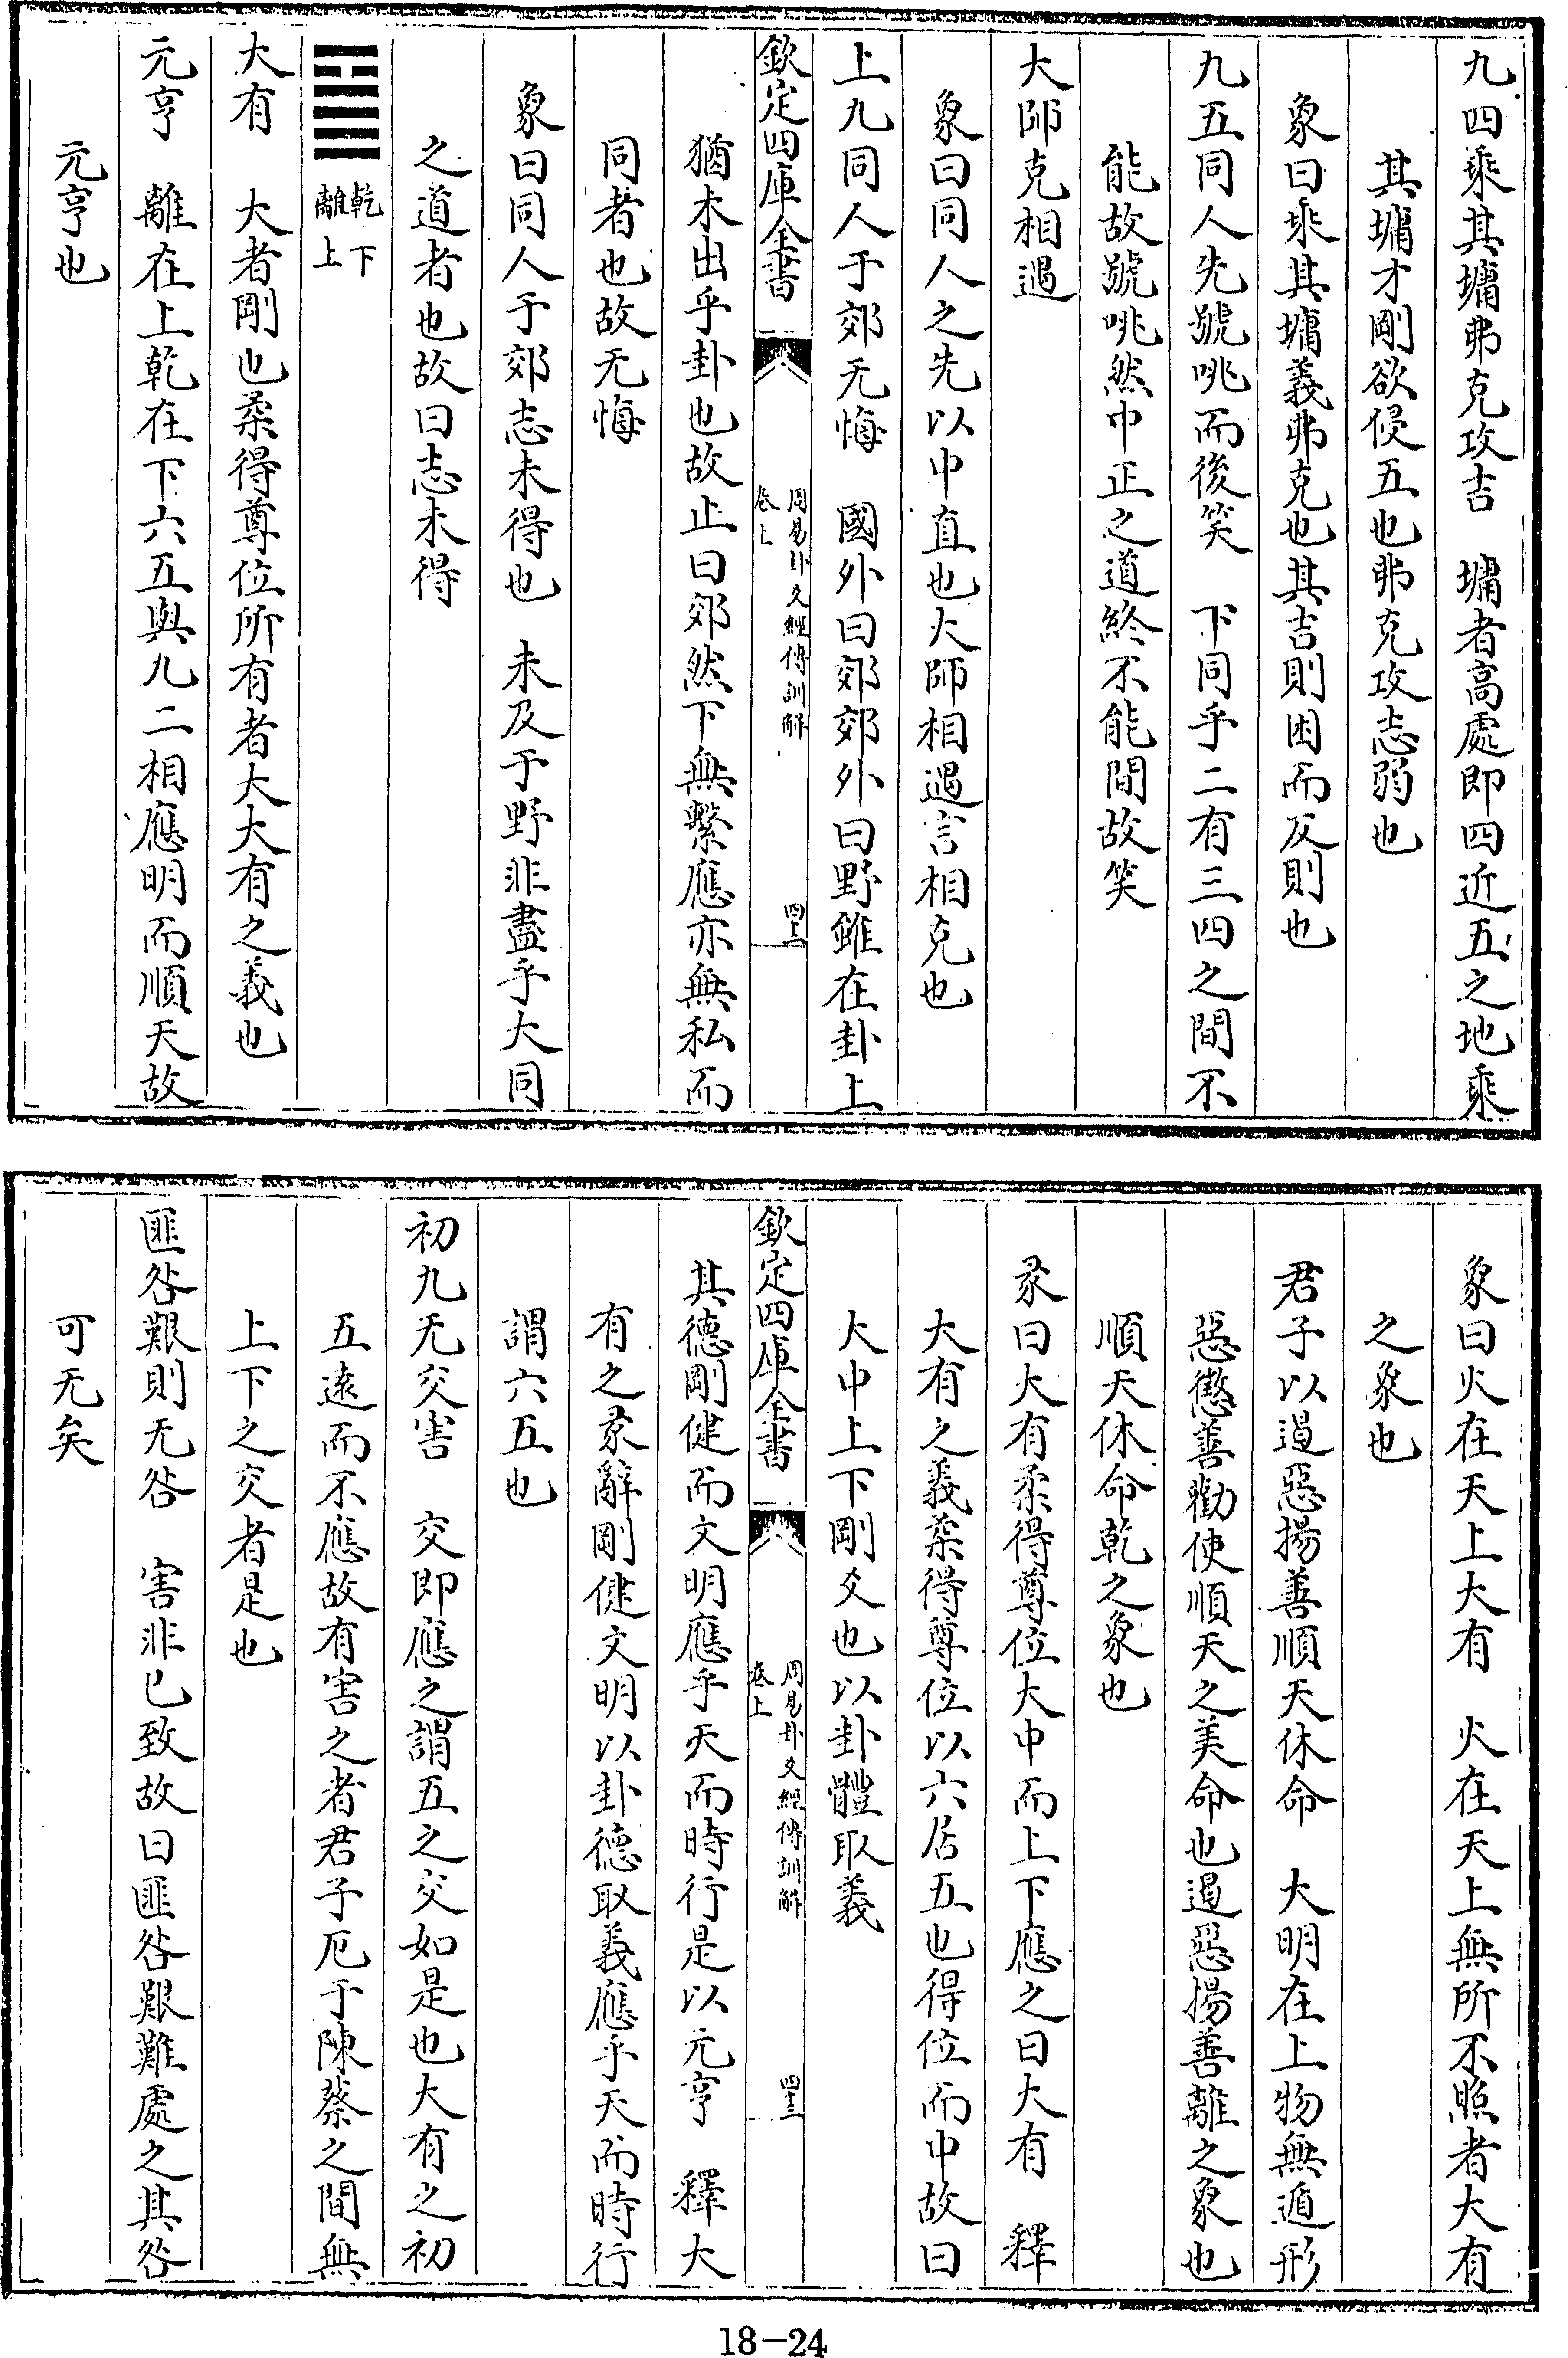 九四乘其墉弗克攻吉　墉者高處即四近五之地乘
其墉才剛欲侵五也弗克攻志弱也
象曰乘其墉義弗克也其吉則困而反則也
九五同人先號咷而後笑　下同乎二有三四之間不
能故號咷然中正之道終不能間故笑
大師克相遇
象曰同人之先以中直也大師相遇言相克也
上九同人于郊无悔　國外曰郊郊外曰野雖在卦上
欽定四庫全書
周易卦爻經傳訓解
卷上
四十二
猶未出乎卦也故止曰郊然下無繫應亦無私而
同者也故无悔
象曰同人于郊志未得也　未及于野非盡乎大同
之道者也故曰志未得
乾下
離上
大有　大者剛也柔得尊位所有者大大有之義也
元亨　離在上乾在下六五與九二相應明而順天故
元亨也
象曰火在天上大有　火在天上無所不照者大有
之象也
君子以遏惡揚善順天休命　大明在上物無遁形
惡懲善勸使順天之美命也遏惡揚善離之象也
順天休命乾之象也
彖曰大有柔得尊位大中而上下應之曰大有　釋
大有之義柔得尊位以六居五也得位而中故曰
大中上下剛爻也以卦體取義
欽定四庫全書
周易卦爻經傳訓解
卷上
四十三
其德剛健而文明應乎天而時行是以元亨　釋大
有之彖辭剛健文明以卦德取義應乎天而時行
謂六五也
初九无交害　交即應之謂五之交如是也大有之初
五遠而不應故有害之者君子厄于陳蔡之間無
上下之交者是也
匪咎艱則无咎　害非已致故曰匪咎艱難處之其咎
可无矣
18-24